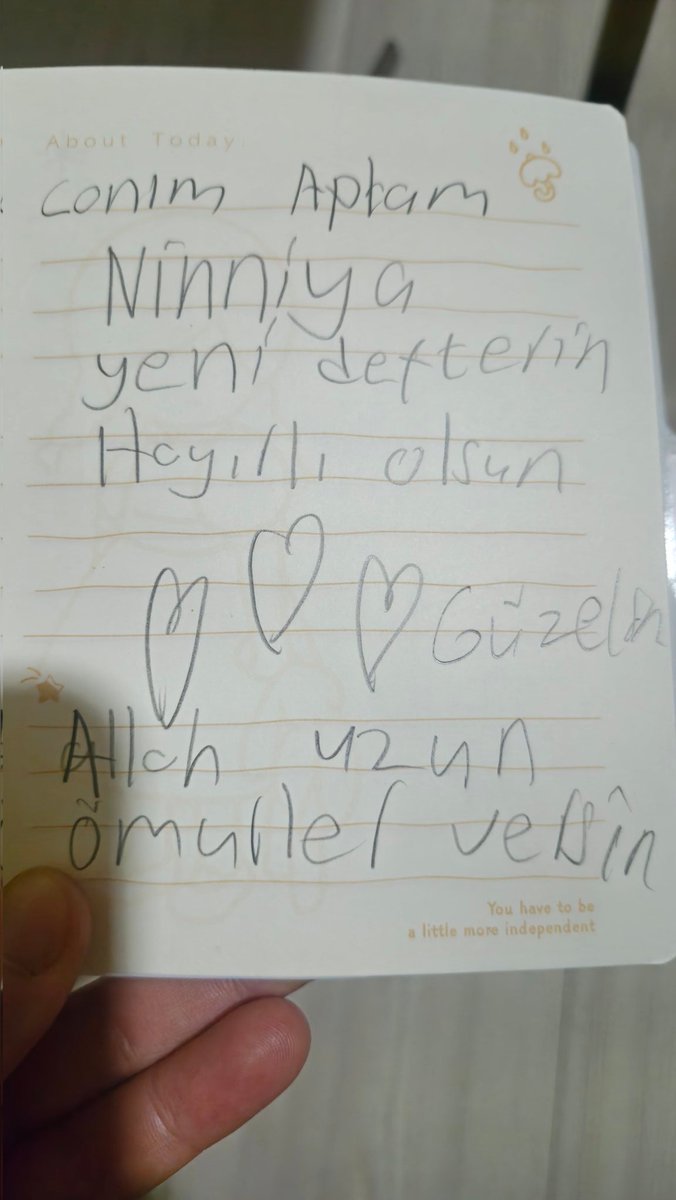 About Today.
conım Aptam
Ninniya
yeni defterin
Hayıllı olsun
Güzelin
Allah uzun
ömurler velsin
You have to be
a little more independent